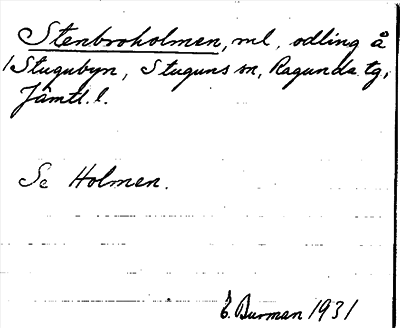 Stenbroholmen, ml, odling å
/Stugubyn, Stuguns sn, Ragunda tg,
Jämtl. l.
Se Holmen.
E. Burman 1931